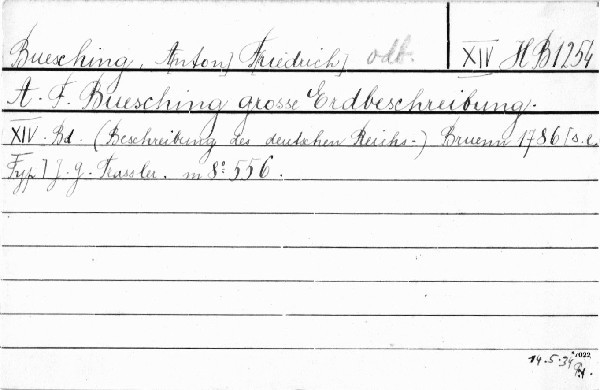 Buesching, Anton] Friedrich] odb. XIV H B 1254
A. F. Buesching grosse Erdbeschreibung.
XIV. Bd. (Beschreibung des deutschen Reichs.) Bruenn 1786 [s.e.
Typ] J. G. Trassler. m 8° 556.
1022
14.5.34